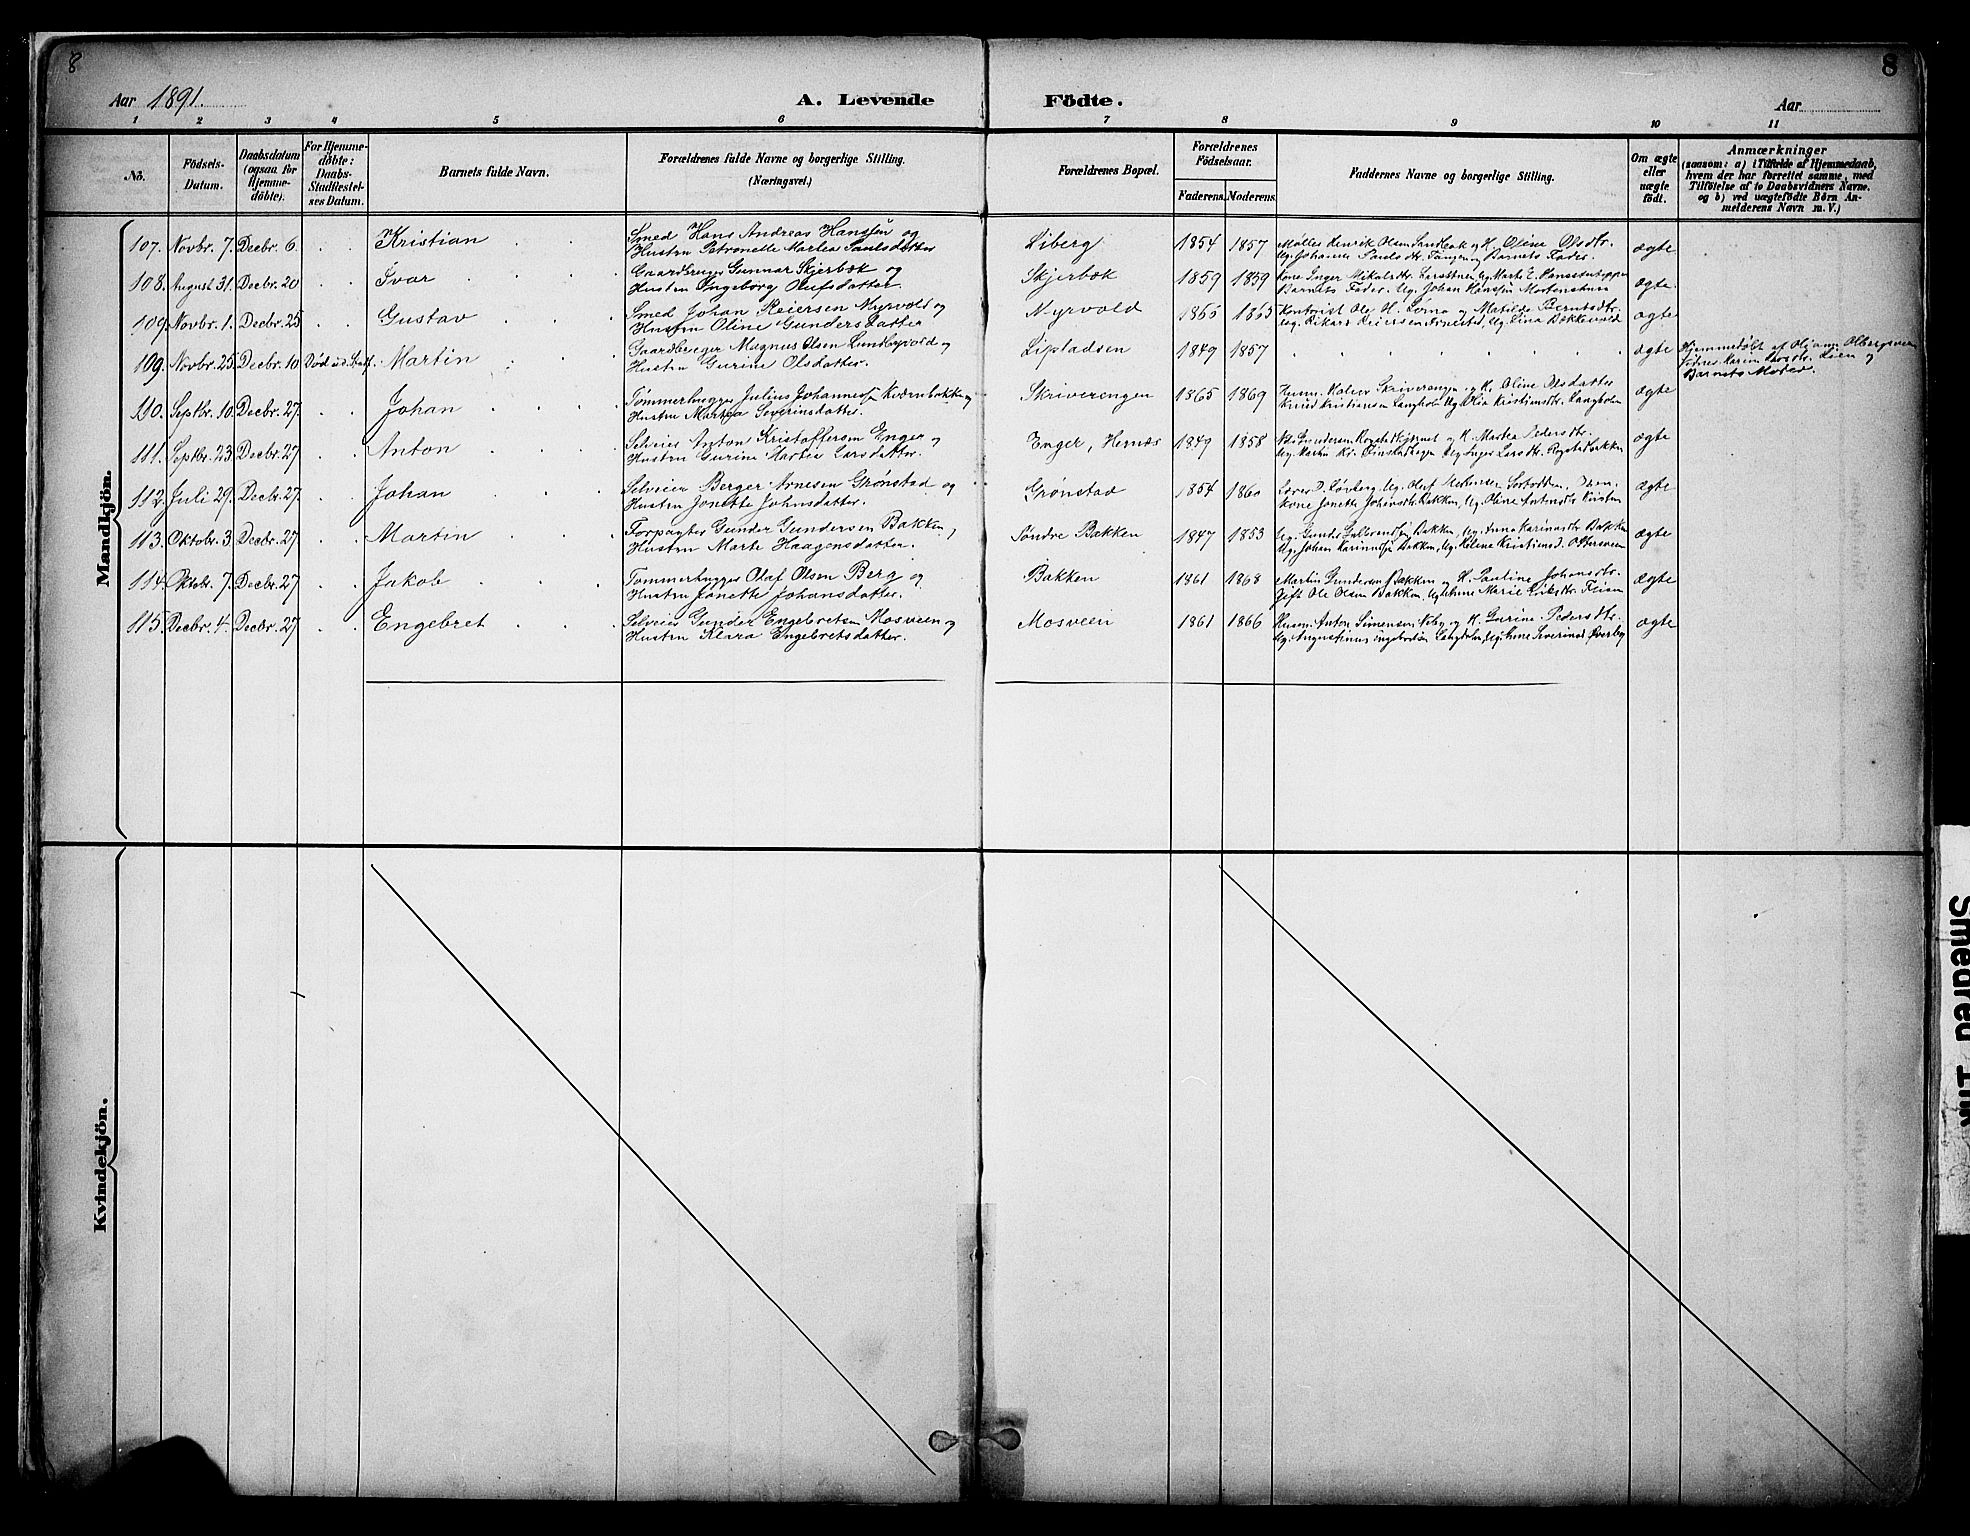 8
8
Aar 1891.
A. Levende Födte.
Aar
1 2 3 4 5 6 7 8 9 10 11
No. Födsels-Datum. Daabsdatum (ogsaa for Hjemme-döbte). For Hjemme-döbte: Daabs-Stadfæstel-ses Datum. Barnets fulde Navn. Forældrenes fulde Navne og borgerlige Stilling. (Næringsvei.) Forældrenes Bopæl. Forældrenes Födselsaar. Faderens. Moderens. Faddernes Navne og borgerlige Stilling. Om ægte eller uægte födt. Anmærkninger (saasom: a) i Tilfælde af Hjemmedaab, hvem der har forrettet samme, med Tilföielse af to Daabsvidners Navne. og b) ved uægtefödte Börn Anmelderens Navn m. V.)
Mandkjön.
107. Novbr. 7. Decbr. 6. Kristian Smed Hans Andreas Hansen og Liberg 1854 1857 Møller Henrik Olsen Sandbak og H. Oline Olsdtr. ægte
Hustru Petronelle Martea Paulsdatter Ug. Johanne Paulsdtr. Tangen og Barnets Fader.
108. August 31. Decbr. 20 Ivar Gaardbruger Gunnar Skjerbæk og Skjerbæk 1859 1859 Kone Inger Mikalsdtr. ægte
Hustru Ingeborg Olufsdatter. Barnets Fader. Ug. Johan Hansen
109. Novbr. 1. Decbr. 25 Gustav Smed Johan Reiersen Myrvold og Myrvold 1865 1865 Kontorist Ole H. og Matilde Berntsdtr. ægte
Hustru Oline Gundersdatter Ug. Rikard Reiersen Ug. Lina Bakkevold
109. Novbr. 25. Decbr. 10 Død Martin Gaardbruger Magnus Olsen og Lipladsen 1849 1857 ægte Hjemmedøbt af
Hustru Gurine Olsdatter. Karen Lien og
Barnets Moder.
110. Septbr. 10. Decbr. 27. Johan Tømmerhugger Julius Johannessen Kværnbakken og Skriverengen 1865 1869 Husm. Skriverengen og H. Oline Olsdatter ægte
Hustru Martea Severinsdatter. Knud Kristiansen Langholm Ug. Olia Kristiansdtr. Langholm
111. Septbr. 23. Decbr. 27 Anton Selveier Anton Kristoffersen Enger og Enger, Hernæs 1849 1858 Nils Gundersen og H. Martea Pedersdtr. ægte
Hustru Gurine Martea Larsdatter. Ug. Martin Kr. Ug. Inger Larsdtr.
112. Juli 29. Decbr. 27. Johan Selveier Berger Arnesen Grønstad og Grønstad 1854 1860 Lærer D. Løvberg. Ug. Oluf ægte
Hustru Jonette Johnsdatter. Kone Jonette Johansdtr. Bakken, Ug. Oline
113. Oktobr. 3. Decbr. 27. Martin Forpagter Gunder Gundersen Bakken, Søndre Bakken 1847 1853 Ug. Gunder Bakken, Ug. Anna Karinusdtr. Bakken ægte
Hustru Marte Haagensdatter. Ug. Johan Karinussen Bakken, Ug. Helene Kristiansd.
114. Oktbr. 7. Decbr. 27 Jakob Tømmerhugger Olaf Olsen Berg og Bakken 1861 1868 Martin Gundersen Bakken og H. Pauline Johansdtr. ægte
Hustru Jonette Johansdatter. Gift Ole Olsen Bakken, Marie
115. Decbr. 4. Decbr. 27 Engebret Selveier Gunder Engebretsen Mosveen og Mosveen 1861 1866 Husm. Anton Simensen og H. Gurine Pedersdtr. ægte
Hustru Klara Engebretsdatter. Ug. Augustinus Langholm, Severinsd. Øverby
Kvindekjön.
Smedred Ink